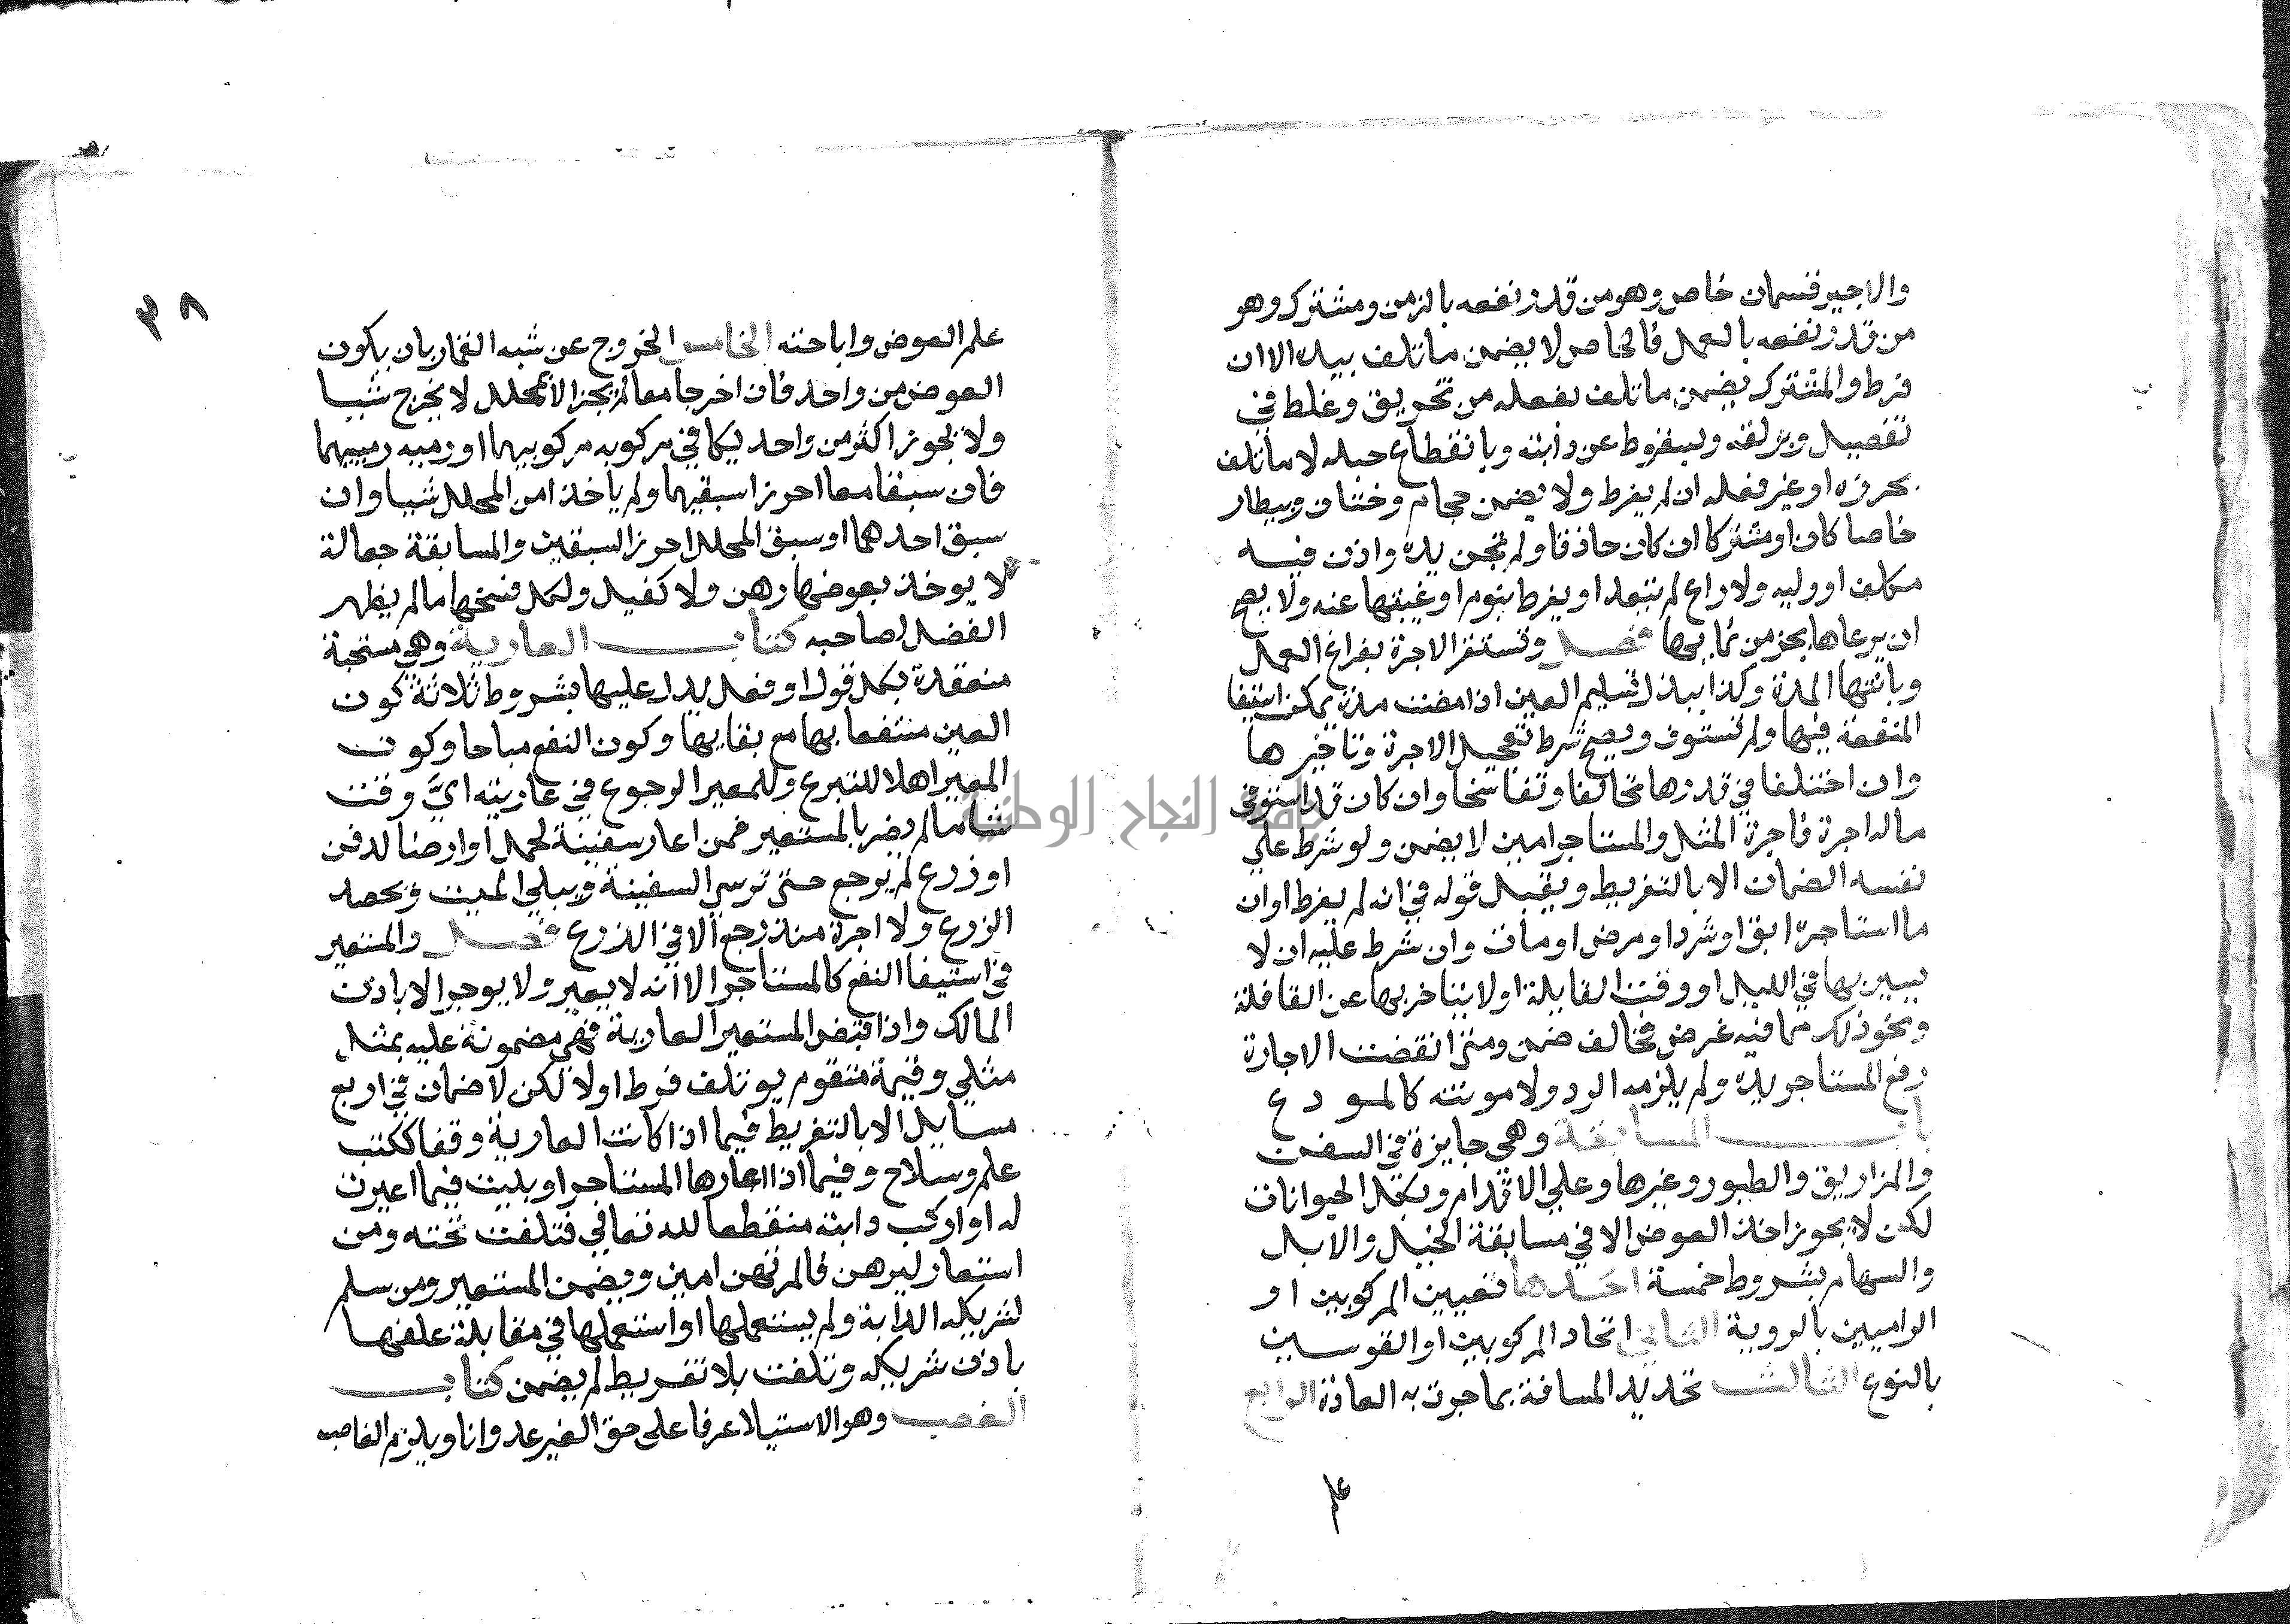 والاجير قسمان خاص وهو من قدر نفعه بالزمن ومشترك وهو
من قدر نفعه بالعمل فالخاص لا يضمن ما تلف بيده الا ان
فرط والمشترك يضمن ما تلف بفعله من تخريق وغلط في
تفصيل وبزلقه وبسقوط عن دابته وبانقطاع حبله لا ما تلف
بحرزه او غير فعله ان لم يفرط ولا يضمن حجام وختان وبيطار
خاصا كان او مشتركا ان كان حاذقا ولم تجن يده واذن فيه
مكلف او وليه ولا راع لم يتعد او يفرط بنوم او غيبتها عنه ولا يصح
ان يرعاها بجزء من نمايها فصل وتستقر الاجرة بفراغ العمل
وبانتها المدة وكذا ببذل تسليم العين اذا مضت مدة يمكن استيفا
المنفعة فيها ولم تستوف ويصح شرط تعجيل الاجرة وتاخيرها
وان اختلفا في قدرها تحالفا وتفاسخا وان كان قد استوفى
ماله اجرة فاجرة المثل والمستاجر امين لا يضمن ولو شرط علي
نفسه الضمان الا بالتفريط ويقبل قوله في انه لم يفرط او ان
ما استاجره ابق او شرد او مرض او مات وان شرط عليه ان لا
يسير بها في الليل او وقت القايلة او لا يتاخر بها عن القافلة
ونحو ذلك مما فيه غرض فخالف ضمن ومتى انقضت الاجارة
رفع المستاجر يده ولم يلزمه الرد ولا مونته كالمودع
باب المسابقة وهي جايزة في السفن
والمزاريق والطيور وغيرها وعلي الاقدام وبكل الحيوانات
لكن لا يجوز اخذ العوض الا في مسابقة الخيل والابل
والسهام بشروط خمسة احدها تعيين المركوبين او
الراميين بالروية الثاني اتحاد المركوبين او القوسين
بالنوع الثالث تحديد المسافة بما جرت به العادة الرابع
علم
٣٨
علم العوض واباحته الخامس الخروج عن شبه القمار بان يكون
العوض من واحد فان اخرجا معا لم يجز الا بمحلل لا يخرج شيا
ولا يجوز اكثر من واحد يكافي مركوبه مركوبيهما او رميه رمييهما
فان سبقا معا احرزا سبقيهما ولم ياخذا من المحلل شيا وان
سبق احدهما او سبق المحلل احرز السبقين والمسابقة جعالة
لا يوخذ بعوضها رهن ولا كفيل ولكل فسخها ما لم يظهر
الفضل لصاحبه كتاب العارية وهي مستحبة
منعقدة بكل قول او فعل يدل عليها بشروط ثلاثة كون
العين منتفعا بها مع بقايها وكون النفع مباحا وكون
المعير اهلا للتبرع وللمعير الرجوع في عاريته اي وقت
شا ما لم يضر بالمستعير فمن اعار سفينة لحمل او ارضا لدفن
او زرع لم يرجع حتى ترسي السفينة ويبلي الميت ويحصد
الزرع ولا اجرة منذ رجع الا في الزرع فصل والمستعير
في استيفا النفع كالمستاجر الا انه لا يعير ولا يوجر الا باذن
المالك واذا قبض المستعير العارية فهي مضمونة عليه بمثل
مثلي وقيمة متقوم يوم تلف فرط او لا لكن لا ضمان في اربع
مسايل الا بالتفريط فيما اذا كانت العارية وقفا ككتب
علم وسلاح وفيما اذا اعارها المستاجر او بليت فيما اعيرت
له او اركب دابته منقطعا لله تعالي فتلفت تحته ومن
استعار ليرهن فالمرتهن امين ويضمن المستعير ومن سلم
لشريكه الدابة ولم يستعملها او استعملها في مقابلة علفها
باذن شريكه وتلفت بلا تفريط لم يضمن كتاب
الغصب وهو الاستيلا عرفا على حق الغير عدوانا ويلزم الغاصب
جامعة النجاح الوطنية